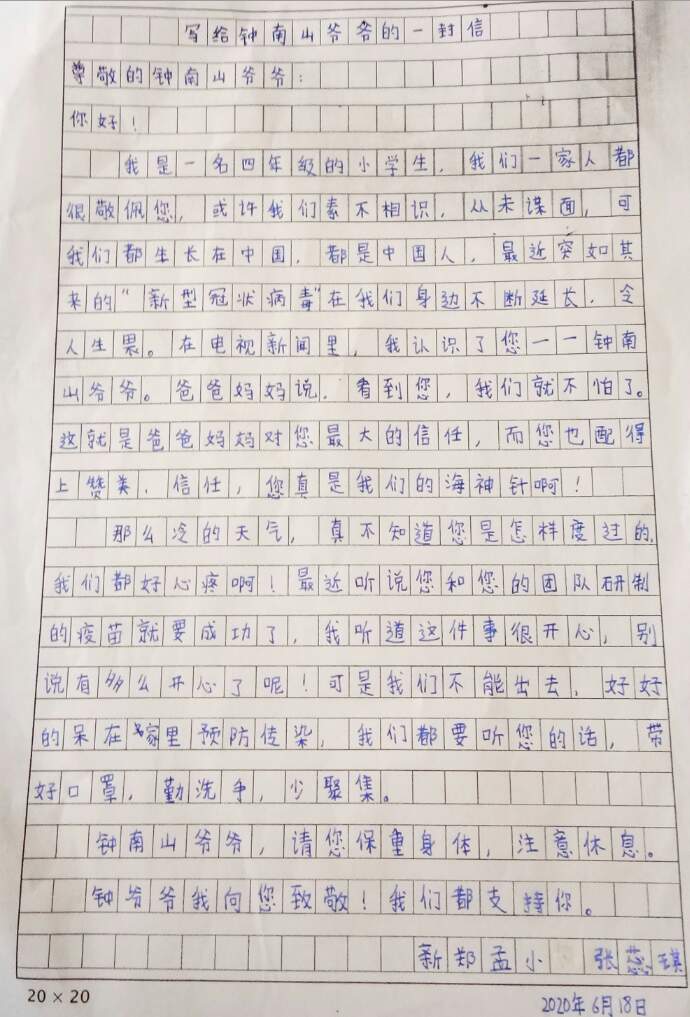 写给钟南山爷爷的一封信
尊敬的钟南山爷爷：
你好！
我是一名四年级的小学生，我们一家人都
很敬佩您，或许我们素不相识，从未谋面，可
我们都生长在中国，都是中国人，最近突如其
来的“新型冠状病毒”在我们身边不断延长，令
人生畏。在电视新闻里，我认识了您一一钟南
山爷爷。爸爸妈妈说，看到您，我们就不怕了。
这就是爸爸妈妈对您最大的信任，而您也配得
上赞美，信任，您真是我们的海神针啊！
那么冷的天气，真不知道您是怎样度过的，
我们都好心疼啊！最近听说您和您的团队研制
的疫苗就要成功了，我听道这件事很开心，别
说有多么开心了呢！可是我们不能出去，好好
的呆在家里预防传染，我们都要听您的话，带
好口罩，勤洗手，少聚集。
钟南山爷爷，请您保重身体，注意休息。
钟爷爷我向您致敬！我们都支持你。
新郑孟小 张蕊琪
20×20
2020年6月18日